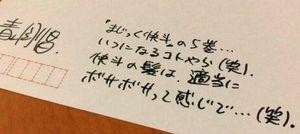 青山剛昌.
「まじっく快斗」の5巻…
いつになるコトやら(笑).
快斗の髪は、適当に
ボサボサって感じで…(笑).